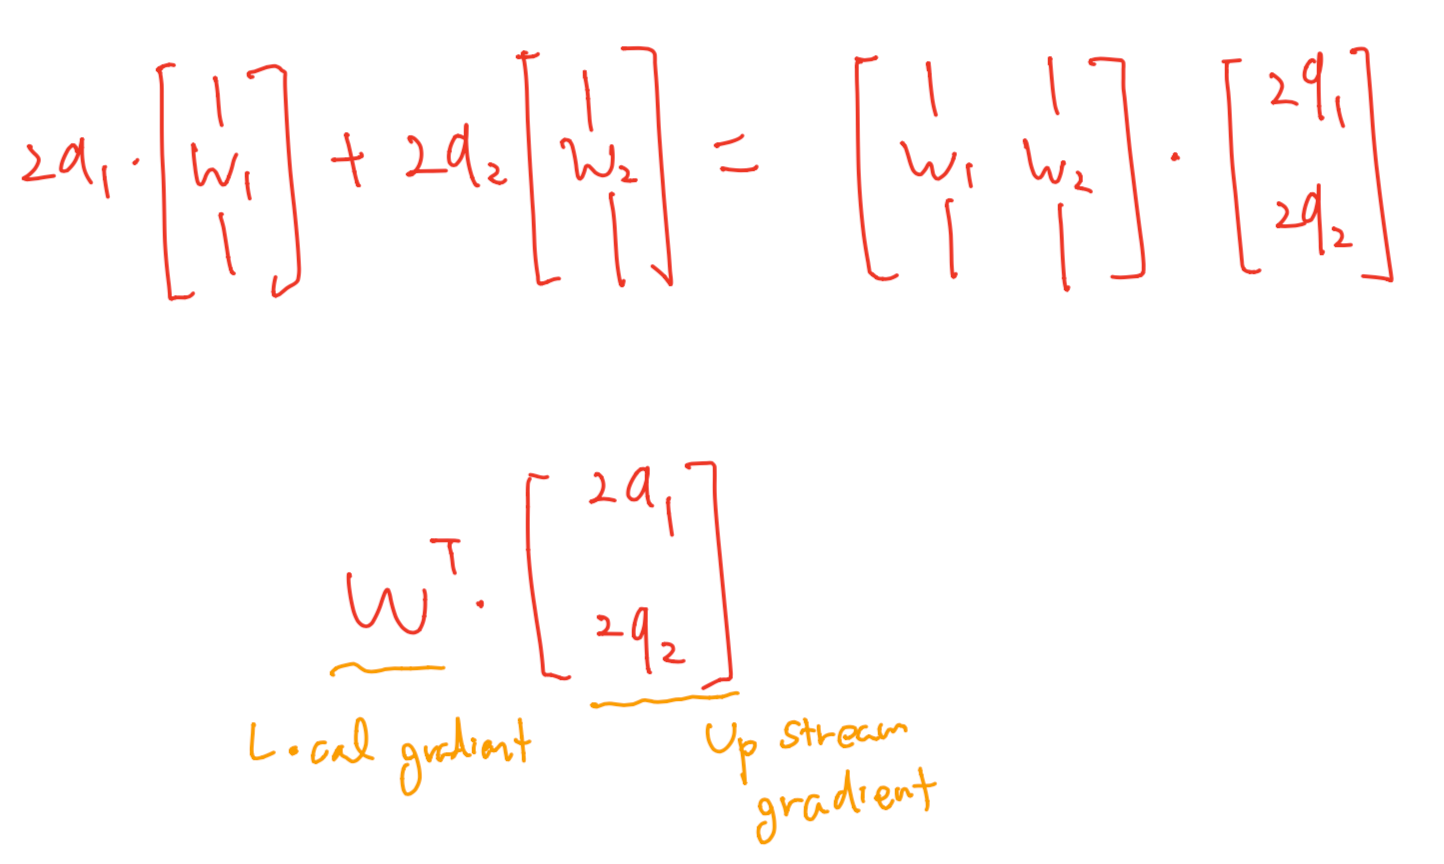 2q₁ · [ | w₁ | ] + 2q₂ [ | w₂ | ] = [ | w₁ | | w₂ | ] · [ 2q₁ 2q₂ ]
Wᵀ · [ 2q₁ 2q₂ ]
Local gradient
Up stream
gradient